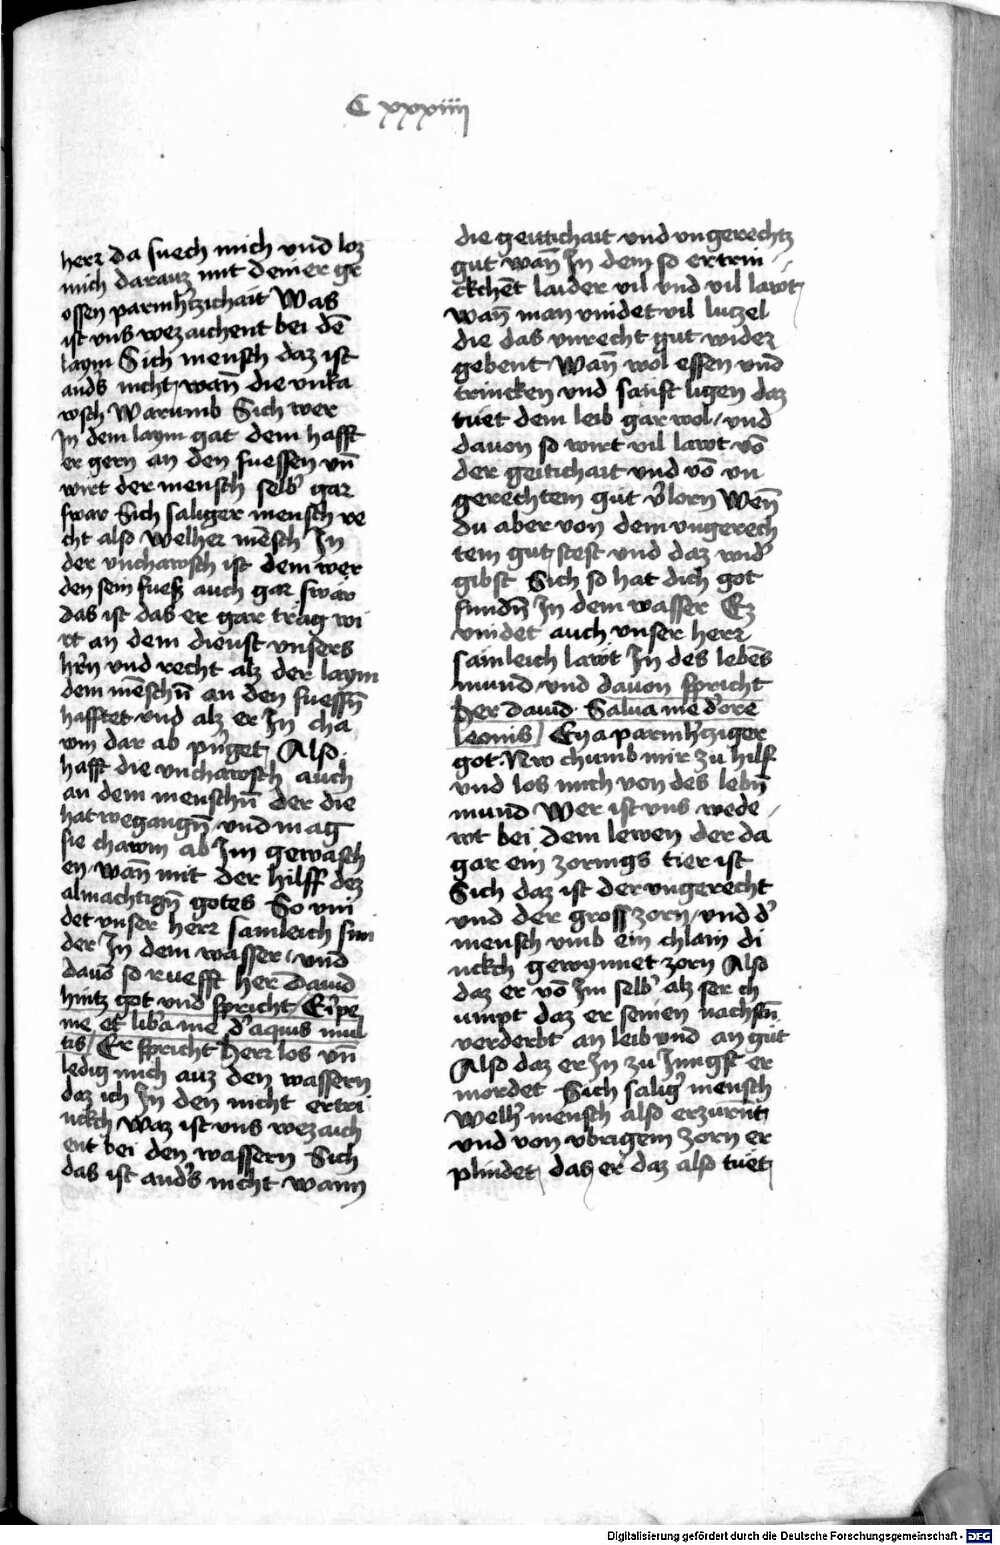 C xxxiiij
herr da suech mich vnd loz
mich darauz mit deiner gr
ossen parmhᵉrtzichait Was
ist vns wezaichent bei dē
laym Sich mensch daz ist
andˢs nicht wan̄ die vnka
wsch Warumb Sich wer
In dem laym gat dem hafft
er gern an den fuessen vn̄
wirt der mensch selbˢ gar
swar Sich saliger mensch re
cht also Welher mēsch In
der vnchawsch ist dem wer
den sein fuesz auch gar swar
das ist das er gar träg wi
rt an dem dienst vnsers
hrn̄ vnd recht alz der laym
dem mēschn̄ an den fuessn̄
hafftet vnd alz er In cha
vm dar ab pringet Also
hafft die vnchawsch auch
an dem menschn̄ der die
hat wegangn̄ vnd mag
sie chawm ab Im gewasch
en wan̄ mit der hilff dez
almachtign̄ gotes So vin
det vnser herr samleich sun
der In dem wasser vnd
dauō so ruefft her Dauid
hintz got vnd spricht Eripe
me et libˢa me dˢ aquis mul
tis / Er spricht Herr los vn̄
ledig mich auz den wassern
daz ich In den nicht ertri
nckch Waz ist vns wezaich
ent bei den wassern Sich
das ist andˢs nicht wann
die geitichait vnd vngerechtz
gut wan̄ In dem so ertrin
ckchēt laider vil vnd vil lawt
Wan̄ man vindet vil luczel
die das vnrecht gut wider
gebent Wan̄ wol essen vnd
trincken vnd sanft ligen daz
tuet dem leib gar wol / vnd
dauon so wirt vil lawt vō
der geitichait vnd vō vn
gerechtem gut vˢlorn Wen̄
du aber von dem vngerech
tem gut stest vnd daz widˢ
gibst Sich so hat dich got
fundn̄ In dem wasser Ez
vindet auch vnser herr
samleich lawt In des lebēs
mund vnd dauon spricht
her dauid Salua me dˢ ore
leonis / Eya parmhˢtziger
got Nw chumb mir zu hilf
vnd los mich von des lebn̄
mund Wer ist vns wede
wt bei dem lewen der da
gar ein zornigs tier ist
Sich daz ist der vngerecht
vnd der gross zorn / vnd dˢ
mensch vmb ein chlain di
nckch gewynnet zorn Also
daz er vō Im selbˢ alz ser ch
umpt daz er seinen nachstn̄
verderbt an leib vnd an gut
Also daz er In zu Jungst er
mordet Sich saligˢ mensch
Welhˢ mensch also erzurnt
vnd von vbrigem zorn er
plindet das er daz also tuet
Digitalisierung gefördert durch die Deutsche Forschungsgemeinschaft - DFG